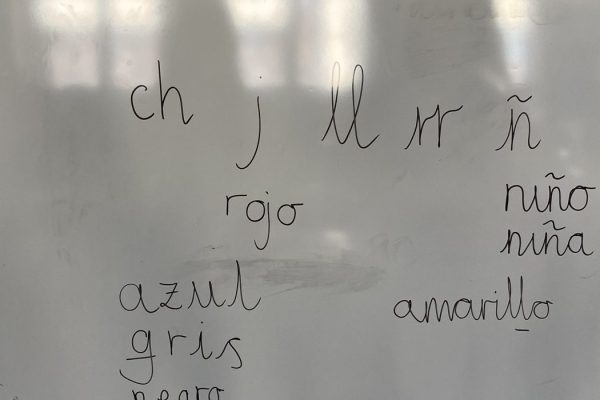 ch j ll rr ñ
rojo
niño
niña
azul
amarillo
gris
negro